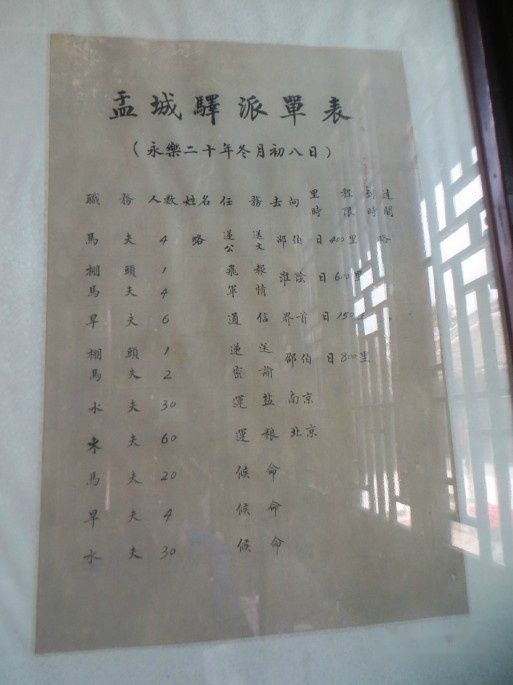 盂城驛派單表
（永樂二十年冬月初八日）
職務 人数 姓名 任務 去向 里時 程限 到時 達間
馬夫 4 略 递送公文 邵伯 日400里 略
棚頭 1 飛報
馬夫 4 軍情 淮陰 日600里
旱夫 6 通信 界首 日150
棚頭 1 递送
馬夫 2 密諭 邵伯 日800里
水夫 30 運盐 南京
水夫 60 運粮 北京
馬夫 20 候命
旱夫 4 候命
水夫 30 候命